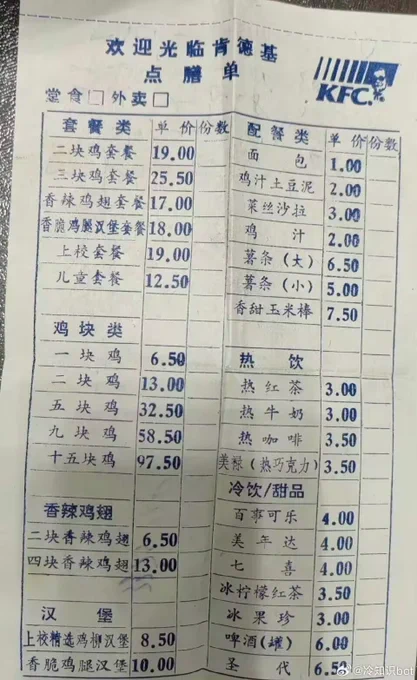 欢迎光临肯德基
点膳单
KFC
堂食□ 外卖□
套餐类 单价 份数
二块鸡套餐 19.00
三块鸡套餐 25.50
香辣鸡翅套餐 17.00
香脆鸡腿汉堡套餐 18.00
上校套餐 19.00
儿童套餐 12.50
鸡块类
一块鸡 6.50
二块鸡 13.00
五块鸡 32.50
九块鸡 58.50
十五块鸡 97.50
香辣鸡翅
二块香辣鸡翅 6.50
四块香辣鸡翅 13.00
汉堡
上校精选鸡柳汉堡 8.50
香脆鸡腿汉堡 10.00
配餐类 单价 份数
面包 1.00
鸡汁土豆泥 2.00
菜丝沙拉 3.00
鸡汁 2.00
薯条(大) 6.50
薯条(小) 5.00
香甜玉米棒 7.50
热饮
热红茶 3.00
热牛奶 3.00
热咖啡 3.50
美禄(热巧克力) 3.50
冷饮/甜品
百事可乐 4.00
美年达 4.00
七喜 4.00
冰柠檬红茶 3.50
冰果珍 3.00
啤酒(罐) 6.00
圣代 6.50
@冷知识bot